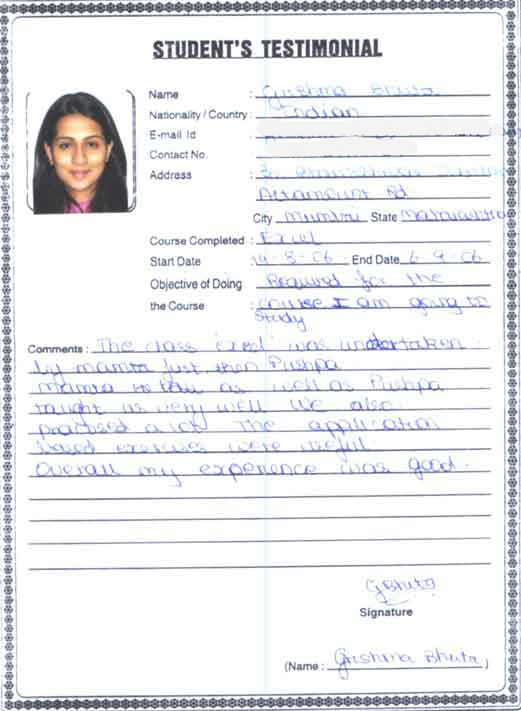 STUDENT'S TESTIMONIAL
Name : Grishma Bhuta
Nationality / Country : Indian
E-mail Id
Contact No.
Address :
Altamount Rd
City Mumbai State Maharashtra
Course Completed : Excel
Start Date : 14-8-06 End Date 6-9-06
Objective of Doing : Required for the
the Course : course I am going to
study
Comments : The class 'Excel' was undertaken
by mamta just then Pushpa
mamta as well as Pushpa
taught us very well We also
practised a lot The application
based exercises were useful.
Overall my experience was good.
GBhuta
Signature
(Name : Grishma Bhuta )